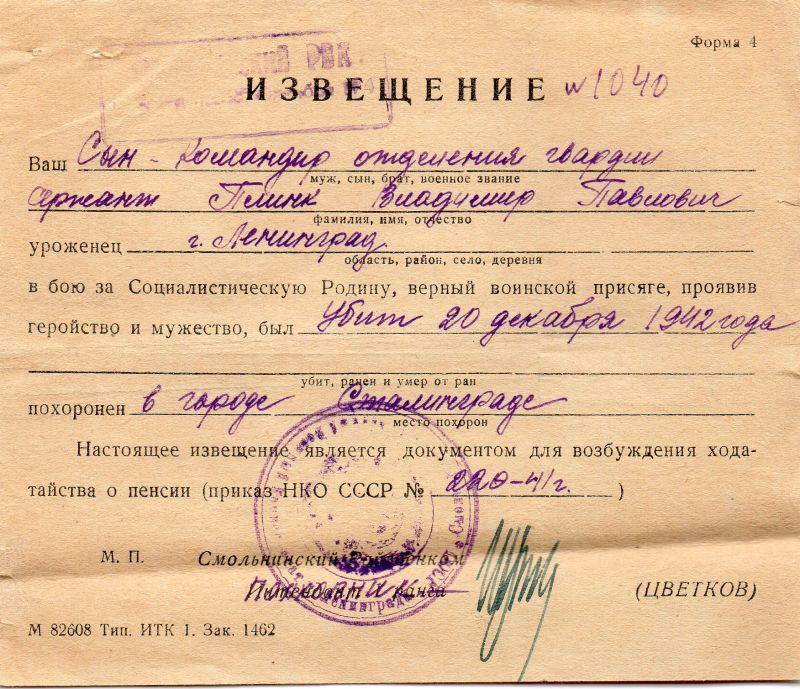 Форма 4
РВК
ИЗВЕЩЕНИЕ N 1040
Ваш Сын - командир отделения гвардии
муж, сын, брат, военное звание
сержант Плинк Владимир Павлович
фамилия, имя, отчество
уроженец г. Ленинград
область, район, село, деревня
в бою за Социалистическую Родину, верный воинской присяге, проявив
геройство и мужество, был Убит 20 декабря 1942 года
убит, ранен и умер от ран
похоронен в городе Сталинграде
место похорон
Настоящее извещение является документом для возбуждения хода-
тайства о пенсии (приказ НКО СССР № 220-41г. )
М. П. Смольнинский Райвоенком
Интендант ранга (ЦВЕТКОВ)
М 82608 Тип. ИТК 1. Зак. 1462